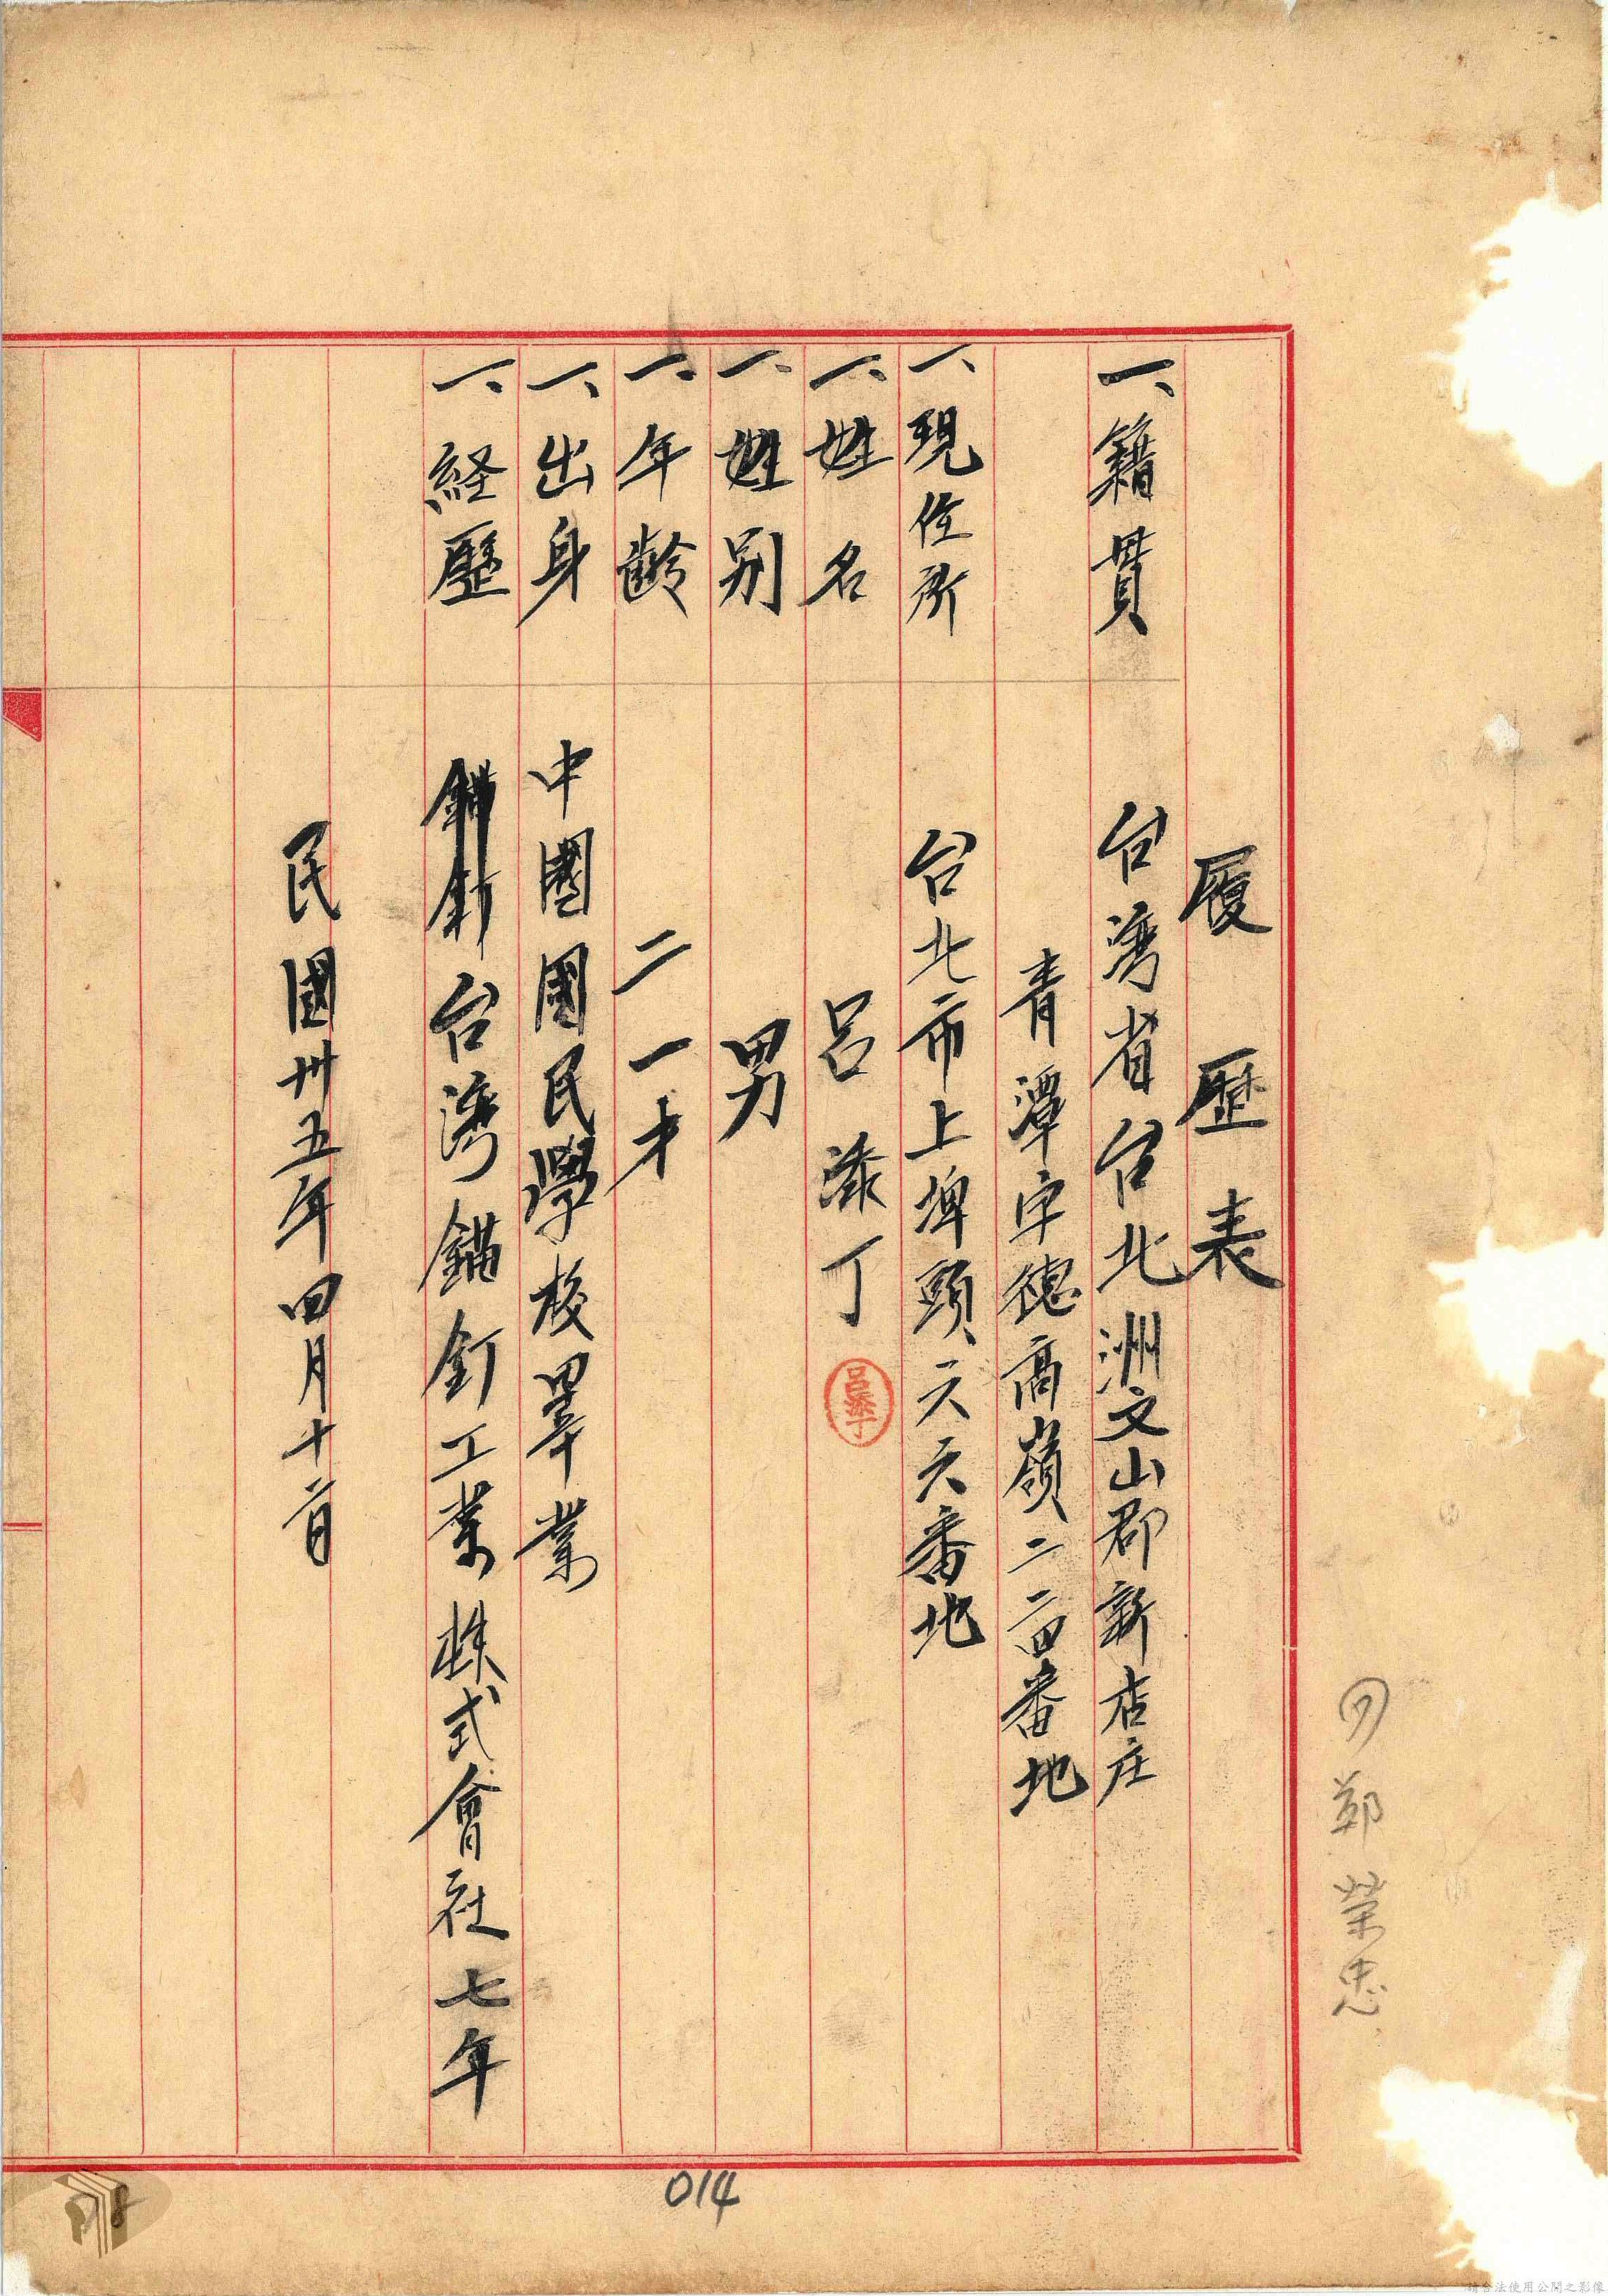 履歴表
一、籍貫 台湾省台北洲文山郡新店庄
青潭字德高嶺二二四番地
一、現住所 台北市上埤頭六六番地
一、姓名 呂添丁
呂添丁
一、姓別 男
一、年齢 二一才
一、出身 中國國民學校畢業
一、経歴 台湾錨釘工業株式會社七年
民國卅五年四月十二日
鄭榮忠
014
請合法使用公開之影像